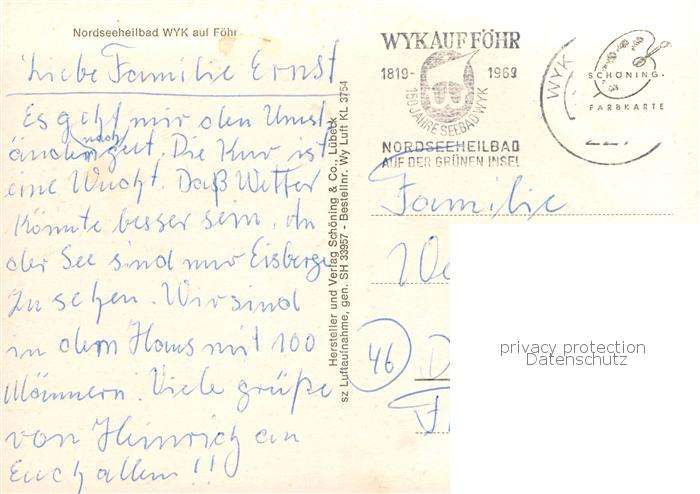 Nordseeheilbad WYK auf Föhr
Liebe Familie Ernst
Es geht mir den Umst
änden nach gut. Die Kur ist
eine Wucht. Daß Wetter
könnte besser sein. An
der See sind nur Eisberge
zu sehen. Wir sind
in dem Haus mit 100
Männern. Viele grüße
von Heinrich an
Euch allen!!
Hersteller und Verlag Schöning & Co., Lübeck
sz Luftaufnahme, gen. SH 33957 - Bestellnr. Wy Luft KL 3754
WYK AUF FÖHR
1819- 1969
150 JAHRE SEEBAD WYK
NORDSEEHEILBAD
AUF DER GRÜNEN INSEL
WYK
SCHÖNING
FARBKARTE
Familie
46
privacy protection
Datenschutz